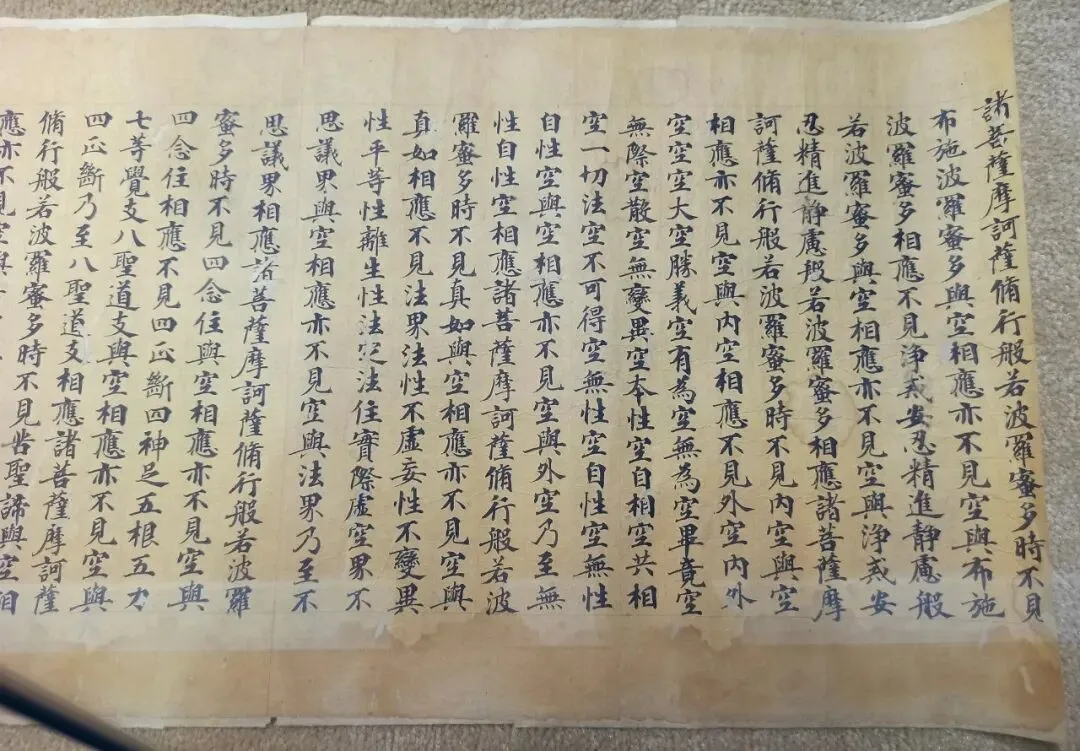 諸菩薩摩訶薩脩行般若波羅蜜多時不見
布施波羅蜜多與空相應亦不見空與布施
波羅蜜多相應不見淨戒安忍精進靜慮般
若波羅蜜多與空相應亦不見空與淨戒安
忍精進靜慮般若波羅蜜多相應諸菩薩摩
訶薩脩行般若波羅蜜多時不見內空與空
相應亦不見空與內空相應不見外空內外
空空空大空勝義空有為空無為空畢竟空
無際空散空無變異空本性空自相空共相
空一切法空不可得空無性空自性空無性
自性空與空相應亦不見空與外空乃至無
性自性空相應諸菩薩摩訶薩脩行般若波
羅蜜多時不見真如與空相應亦不見空與
真如相應不見法界法性不虛妄性不變異
性平等性離生性法定法住實際虛空界不
思議界與空相應亦不見空與法界乃至不
思議界相應諸菩薩摩訶薩脩行般若波羅
蜜多時不見四念住與空相應亦不見空與
四念住相應不見四正斷四神足五根五力
七等覺支八聖道支與空相應亦不見空與
四正斷乃至八聖道支相應諸菩薩摩訶薩
脩行般若波羅蜜多時不見苦聖諦與空相
應亦不見空與